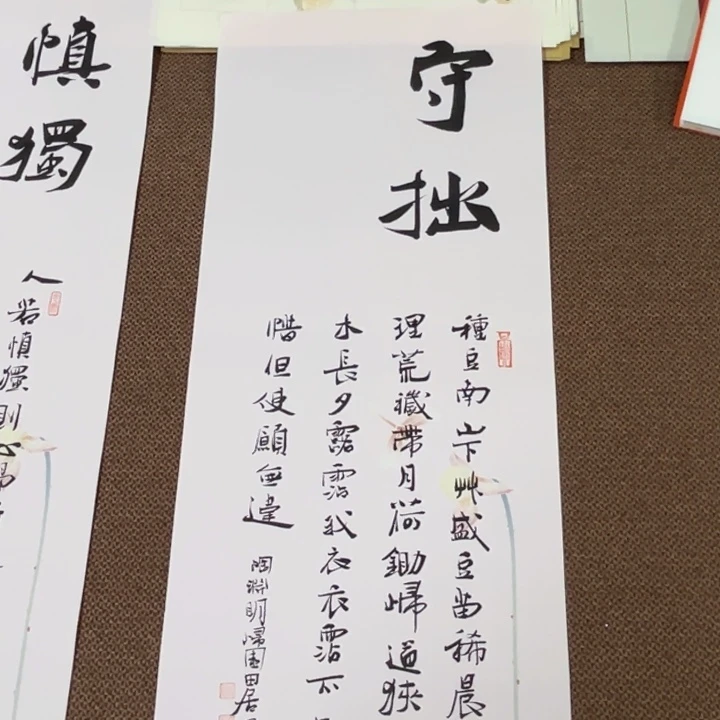 守拙
種豆南山下艸盛豆苗稀晨
理荒穢帶月荷鋤歸道狹
木長夕露霑我衣衣霑不
惜但使願無違
陶淵明歸園田居
慎獨
人若慎獨則心